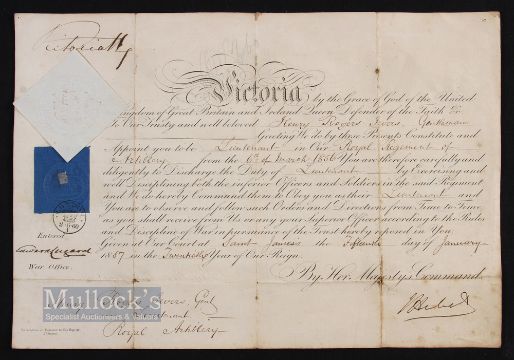 Victoria R
Victoria by the Grace of God of the United
Kingdom of Great Britain and Ireland Queen Defender of the Faith &c
To Our Trusty and well beloved Henry Rogers Gentleman
Greeting We do by these Presents Constitute and
Appoint you to be Lieutenant in Our Royal Regiment of
Artillery from the 6th of March 1856 You are therefore carefully and
diligently to Discharge the Duty of Lieutenant by Exercising and
well Disciplining both the inferior Officers and Soldiers in the said Regiment
and We do hereby Command them to Obey you as their Lieutenant and
You to observe and follow such Orders and Directions from Time to Time
as you shall receive from Us or any your Superior Officer according to the Rules
and Discipline of War in pursuance of the Trust hereby reposed in You
Given at Our Court at Saint James's the day of January
1857 in the Twentieth Year of Our Reign
Entered
War Office.
By Her Majesty's Command
Gent
Lieutenant
Royal Artillery
Mullock's
Specialist Auctioneers & Valuers